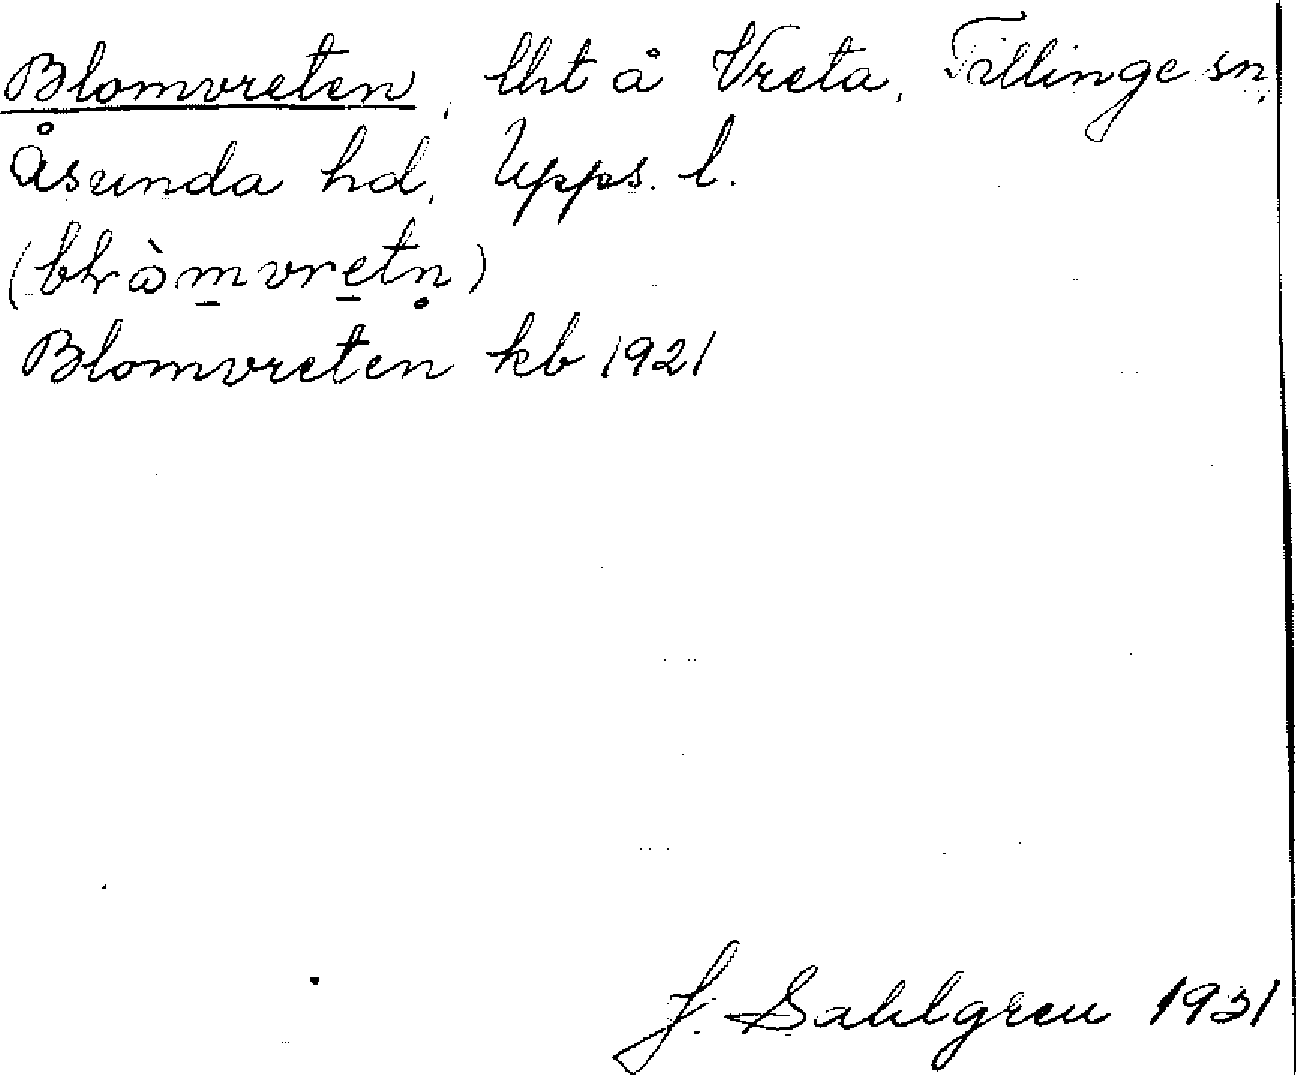 Blomvreten, lht å Vreta, Tillinge sn,
Åsunda hd, Upps. l.
(blòm̲vre̲tn̥)
Blomvreten kb 1921
J. Sahlgren 1931